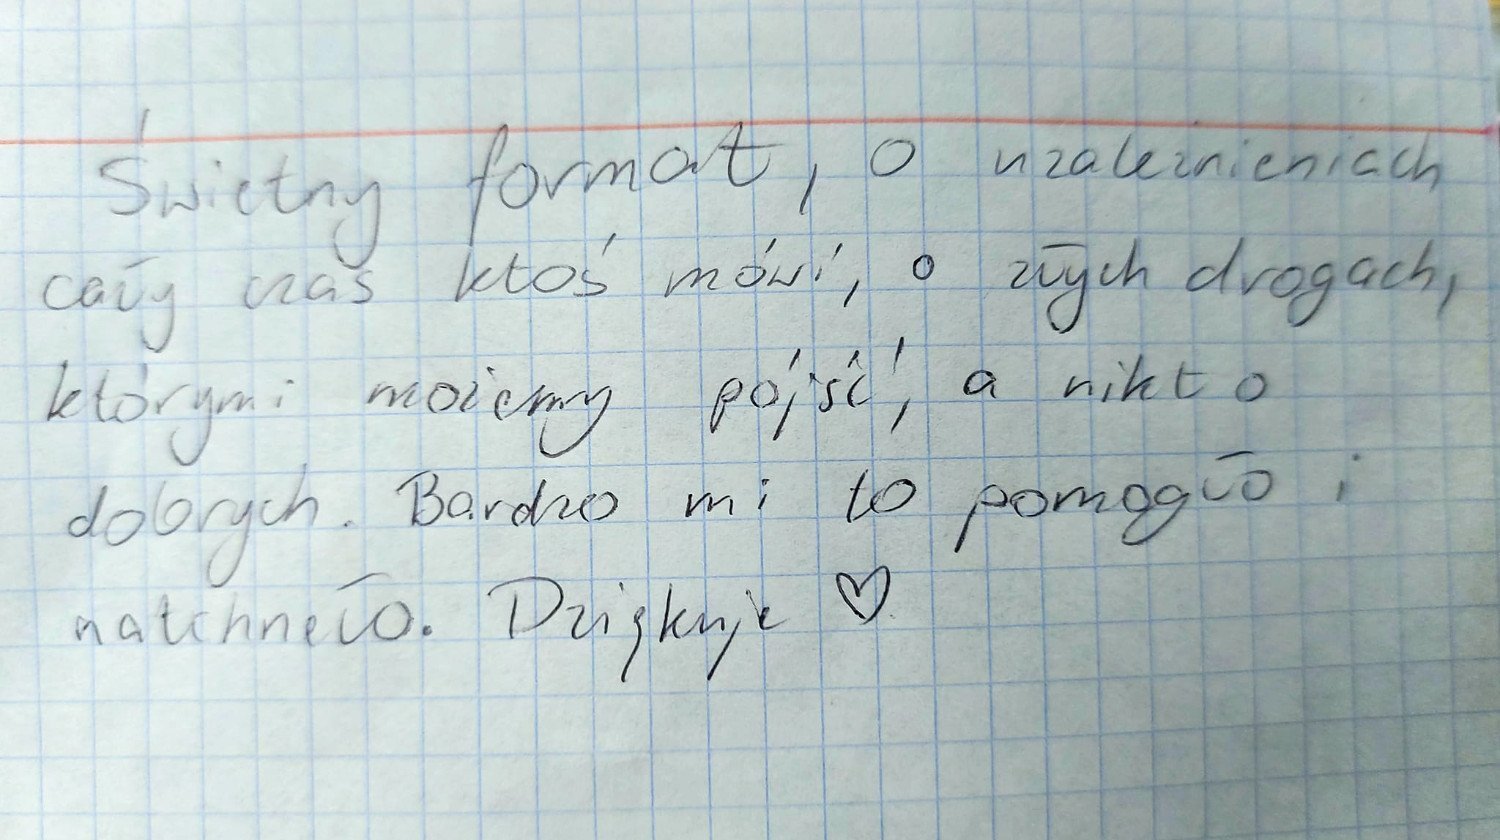 Świetny format, o uzależnieniach
cały czas ktoś mówi, o złych drogach,
którymi możemy pójść, a nikt o
dobrych. Bardzo mi to pomogło i
natchneło. Dziękuje ♡